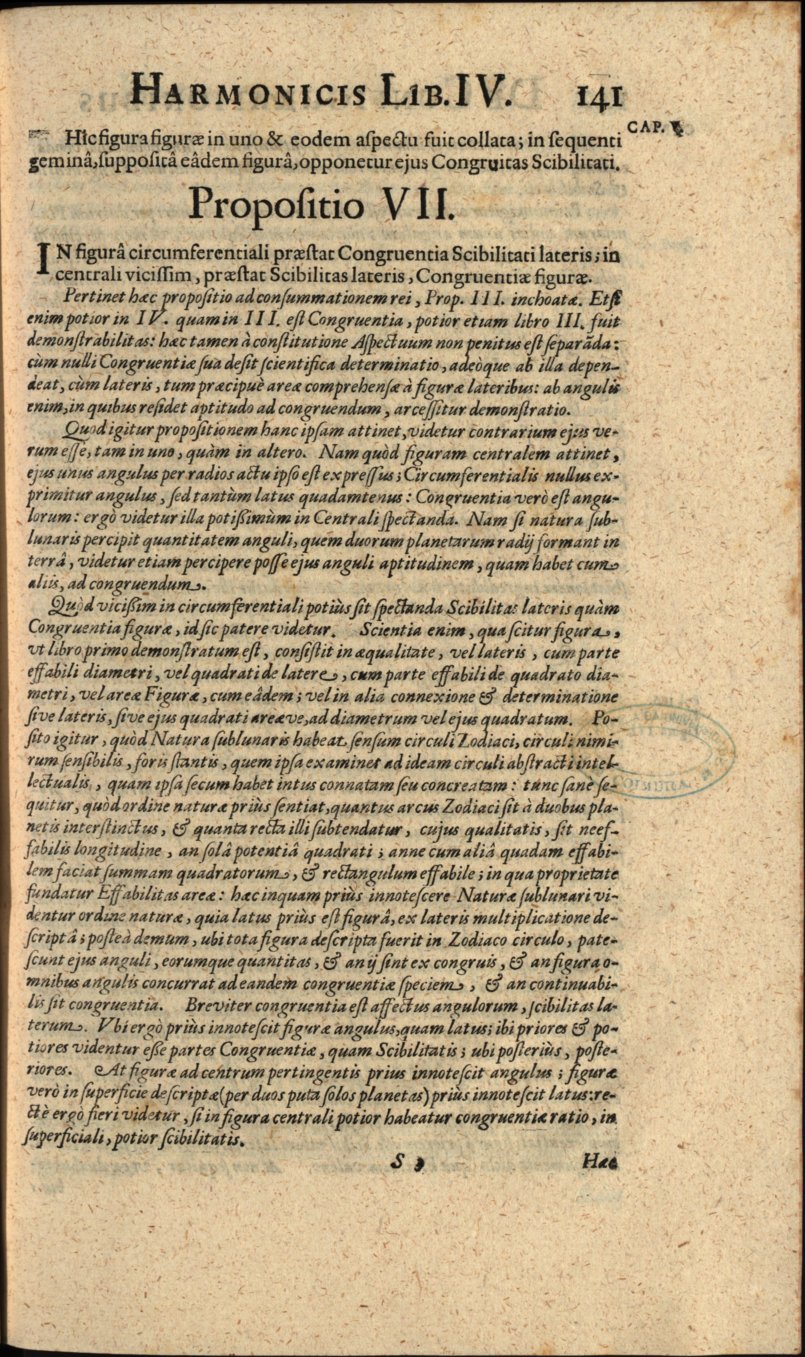 HARMONICIS LIB. IV. 141
CAP. V.
Hîc figura figuræ in uno & eodem aſpectu fuit collata; in ſequenti
geminâ, ſuppoſitâ eâdem figurâ, opponetur ejus Congruitas Scibilitati.
Propoſitio VII.
IN figurâ circumferentiali præſtat Congruentia Scibilitati lateris; in
centrali viciſſim, præſtat Scibilitas lateris, Congruentiæ figuræ.
Pertinet hæc propoſitio ad conſummationem rei, Prop. III. inchoatæ. Etſi
enim potior in IV. quam in III. eſt Congruentia, potior etiam libro III. fuit
demonſtrabilitas: hæc tamen à conſtitutione Aſpectuum non penitus eſt ſeparāda:
cùm nulli Congruentiæ ſua deſit ſcientifica determinatio, adeòque ab illa depen-
deat, cùm lateris, tum præcipuè areæ comprehenſæ à figuræ lateribus: ab angulis
enim, in quibus reſidet aptitudo ad congruendum, arceſſitur demonſtratio.
Quod igitur propoſitionem hanc ipſam attinet, videtur contrarium ejus ve-
rum eſſe, tam in uno, quàm in altero. Nam quòd figuram centralem attinet,
ejus unus angulus per radios actu ipſo eſt expreſſus; Circumferentialis nullus ex-
primitur angulus, ſed tantùm latus quadamtenus: Congruentia verò eſt angu-
lorum: ergò videtur illa potißimùm in Centrali ſpectanda. Nam ſi natura ſub-
lunaris percipit quantitatem anguli, quem duorum planetarum radij formant in
terrâ, videtur etiam percipere poſſe ejus anguli aptitudinem, quam habet cum
aliis, ad congruendum.
Quòd vicißim in circumferentiali potiùs ſit ſpectanda Scibilitas lateris quàm
Congruentia figuræ, id ſic patere videtur. Scientia enim, qua ſcitur figura,
vt libro primo demonſtratum eſt, conſiſtit in æqualitate, vel lateris, cum parte
effabili diametri, vel quadrati de latere, cum parte effabili de quadrato dia-
metri, vel areæ Figuræ, cum eâdem; vel in alia connexione & determinatione
ſive lateris, ſive ejus quadrati areæve, ad diametrum vel ejus quadratum. Po-
ſito igitur, quòd Natura ſublunaris habeat ſenſum circuli Zodiaci, circuli nimi-
rum ſenſibilis, foris ſtantis, quem ipſa examinet ad ideam circuli abſtracti intel-
lectualis, quam ipſa ſecum habet intus connatam ſeu concreatam: tunc ſanè ſe-
quitur, quòd ordine naturæ priùs ſentiat, quantus arcus Zodiaci ſit à duobus pla-
netis interſtinctus, & quanta recta illi ſubtendatur, cujus qualitatis, ſit neef-
fabilis longitudine, an ſolâ potentiâ quadrati; anne cum aliâ quadam effabi-
lem faciat ſummam quadratorum, & rectangulum effabile; in qua proprietate
fundatur Effabilitas areæ: hæc inquam priùs innoteſcere Naturæ ſublunari vi-
dentur ordine naturæ, quia latus priùs eſt figurâ, ex lateris multiplicatione de-
ſcriptâ; poſteà demum, ubi tota figura deſcripta fuerit in Zodiaco circulo, pate-
ſcunt ejus anguli, eorumque quantitas, & an ij ſint ex congruis, & an figura o-
mnibus angulis concurrat ad eandem congruentiæ ſpeciem, & an continuabi-
lis ſit congruentia. Breviter congruentia eſt affectus angulorum, ſcibilitas la-
terum. Vbi ergò priùs innoteſcit figuræ angulus, quam latus; ibi priores & po-
tiores videntur eſſe partes Congruentiæ, quam Scibilitatis; ubi poſteriùs, poſte-
riores. At figuræ ad centrum pertingentis prius innoteſcit angulus; figuræ
verò in ſuperficie deſcriptæ (per duos puta ſolos planetas) priùs innoteſcit latus: re-
ctè ergò fieri videtur, ſi in figura centrali potior habeatur congruentiæ ratio, in
ſuperficiali, potior ſcibilitatis.
S 3 Hæc